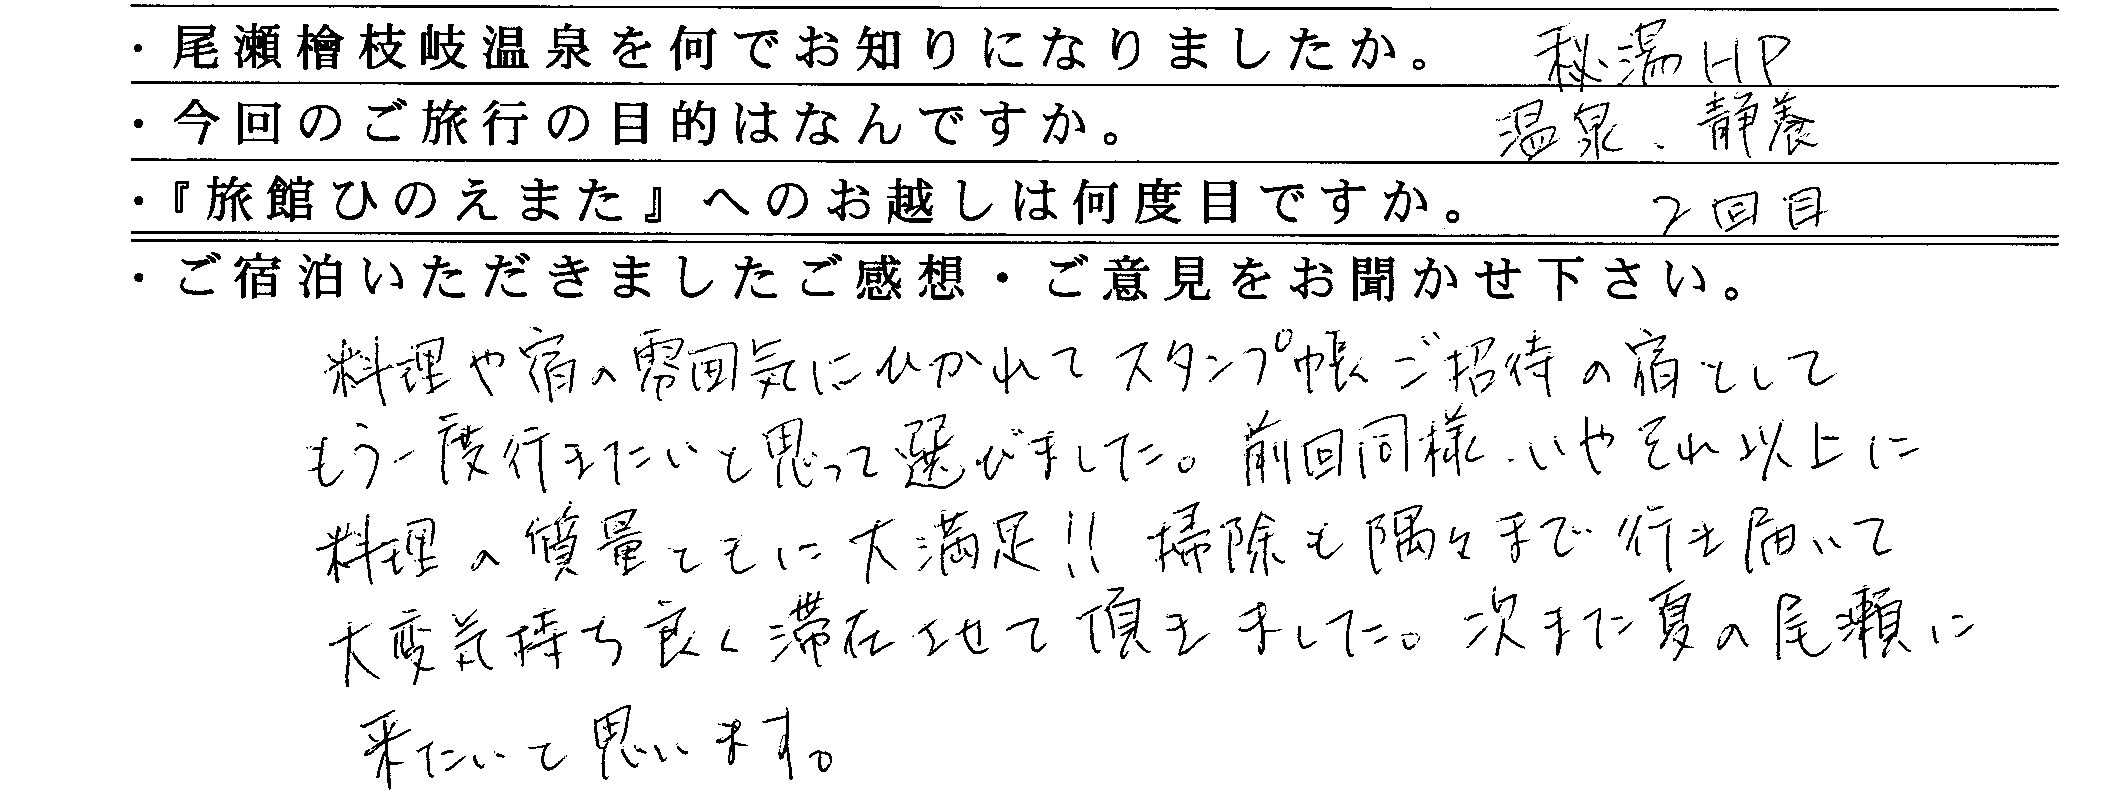 ・尾瀬檜枝岐温泉を何でお知りになりましたか。 秘湯HP
・今回のご旅行の目的はなんですか。 温泉、静養
・『旅館ひのえまた』へのお越しは何度目ですか。 2回目
・ご宿泊いただきましたご感想・ご意見をお聞かせ下さい。
料理や宿の雰囲気にひかれてスタンプ帳ご招待の宿として
もう一度行きたいと思って選びました。前回同様、いやそれ以上に
料理の質量ともに大満足!! 掃除も隅々まで行き届いて
大変気持ち良く滞在させて頂きました。次また夏の尾瀬に
来たいと思います。